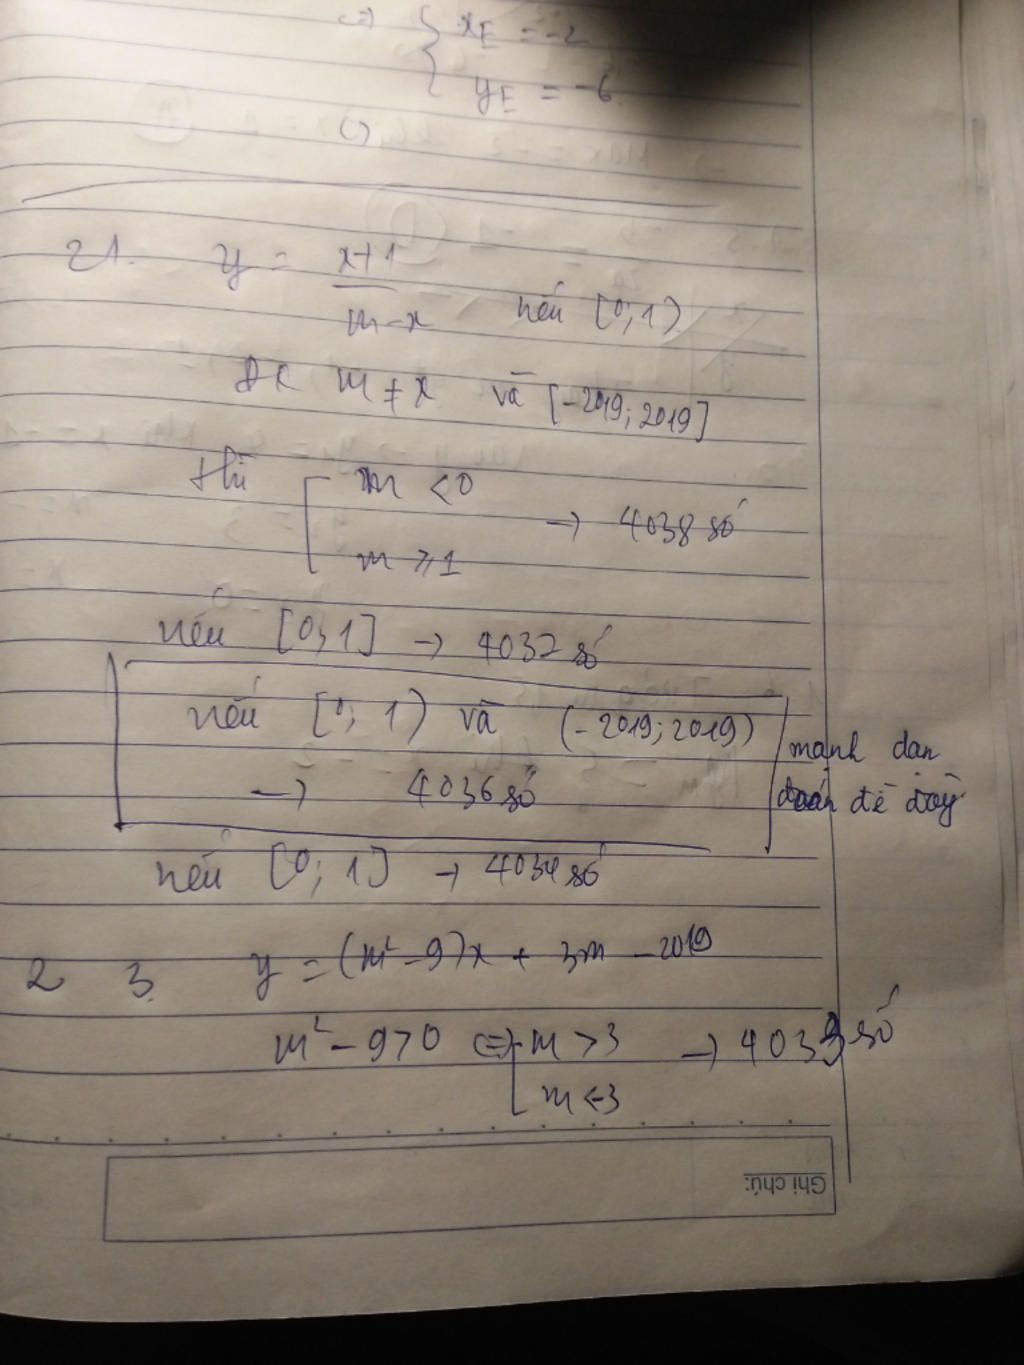 => { x_E = -2
y_E = -6.
()
21. y = \frac{x+1}{m-x} nếu [0; 1)
ĐK m ≠ x và [-2019; 2019]
thì [ m < 0
m ≥ 1 → 4038 số
nếu [0; 1] → 4037 số
nếu [0; 1) và (-2019; 2019)
→ 4036 số
mạnh dạn
đoán đề đây
nếu [0; 1] → 4034 số
2 3. y = (m² - 9)x + 3m - 2019
m² - 9 > 0 <=> [ m > 3 → 4033 số
m < -3
Ghi chú: